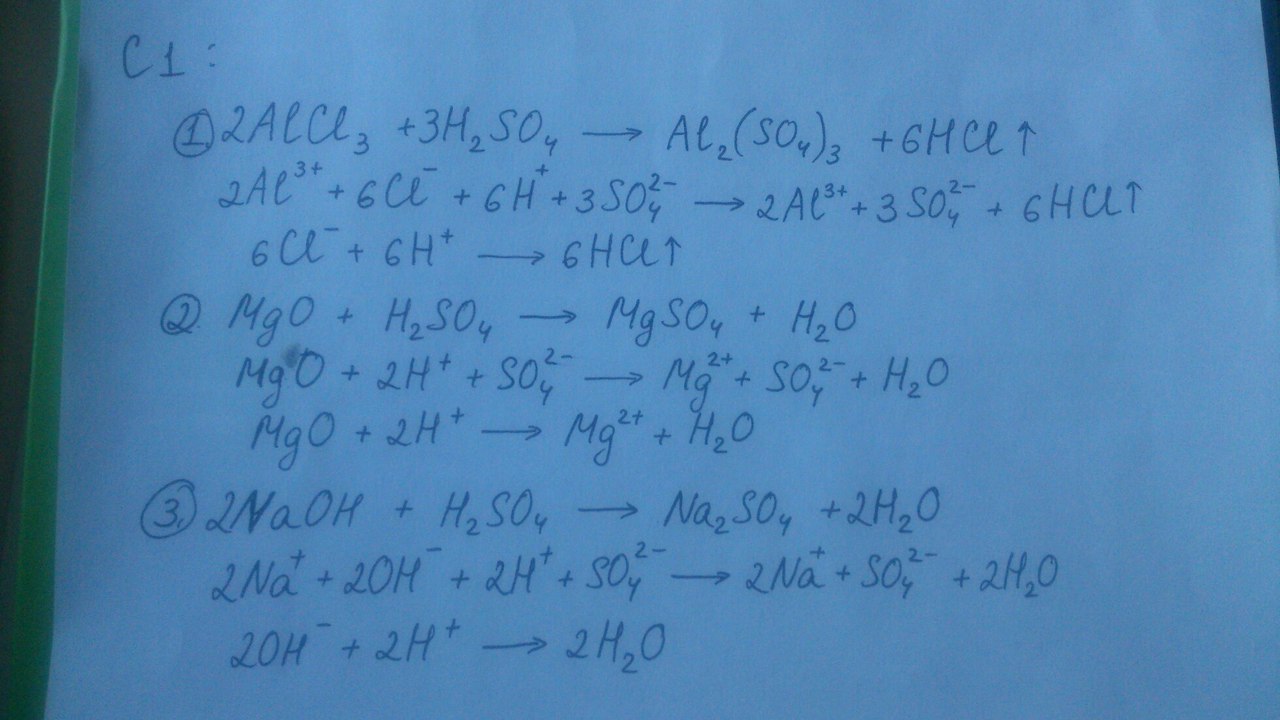 C1:
① 2AlCl₃ + 3H₂SO₄ → Al₂(SO₄)₃ + 6HCl↑
2Al³⁺ + 6Cl⁻ + 6H⁺ + 3SO₄²⁻ → 2Al³⁺ + 3SO₄²⁻ + 6HCl↑
6Cl⁻ + 6H⁺ → 6HCl↑
② MgO + H₂SO₄ → MgSO₄ + H₂O
MgO + 2H⁺ + SO₄²⁻ → Mg²⁺ + SO₄²⁻ + H₂O
MgO + 2H⁺ → Mg²⁺ + H₂O
③ 2NaOH + H₂SO₄ → Na₂SO₄ + 2H₂O
2Na⁺ + 2OH⁻ + 2H⁺ + SO₄²⁻ → 2Na⁺ + SO₄²⁻ + 2H₂O
2OH⁻ + 2H⁺ → 2H₂O